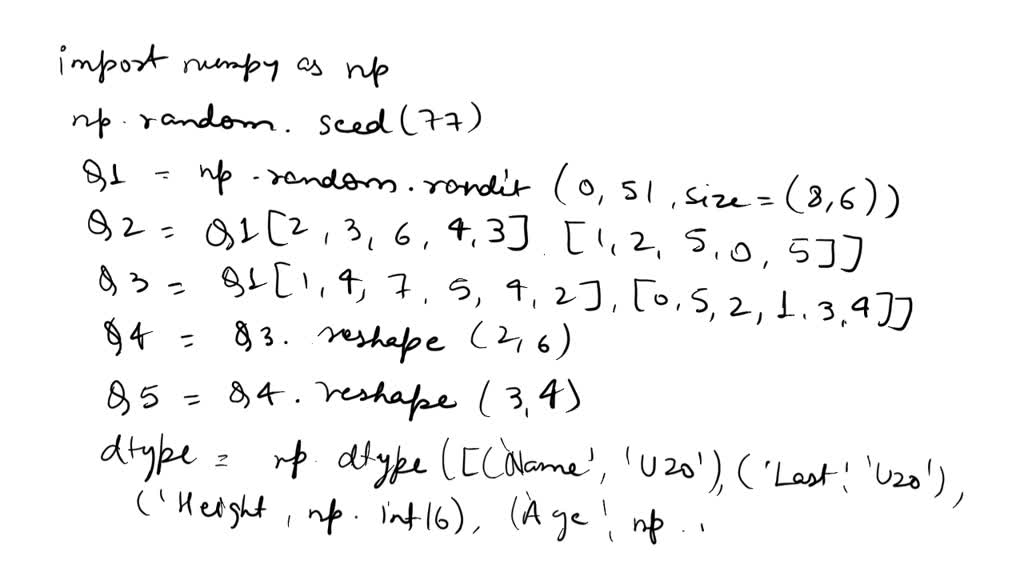 import numpy as np
np.random.seed(77)
Q1 = np.random.randit (0, 51, size = (8,6))
Q2 = Q1[2, 3, 6, 4, 3] [1, 2, 5, 0, 5]]
Q3 = Q1[1, 4, 7, 5, 4, 2], [0, 5, 2, 1, 3, 4]]
Q4 = Q3. reshape (2,6)
Q5 = Q4. reshape (3,4)
dtype = np. dtype ([('Name', 'U20'), ('Last', 'U20'),
('Height, np. int16), ('Age', np.